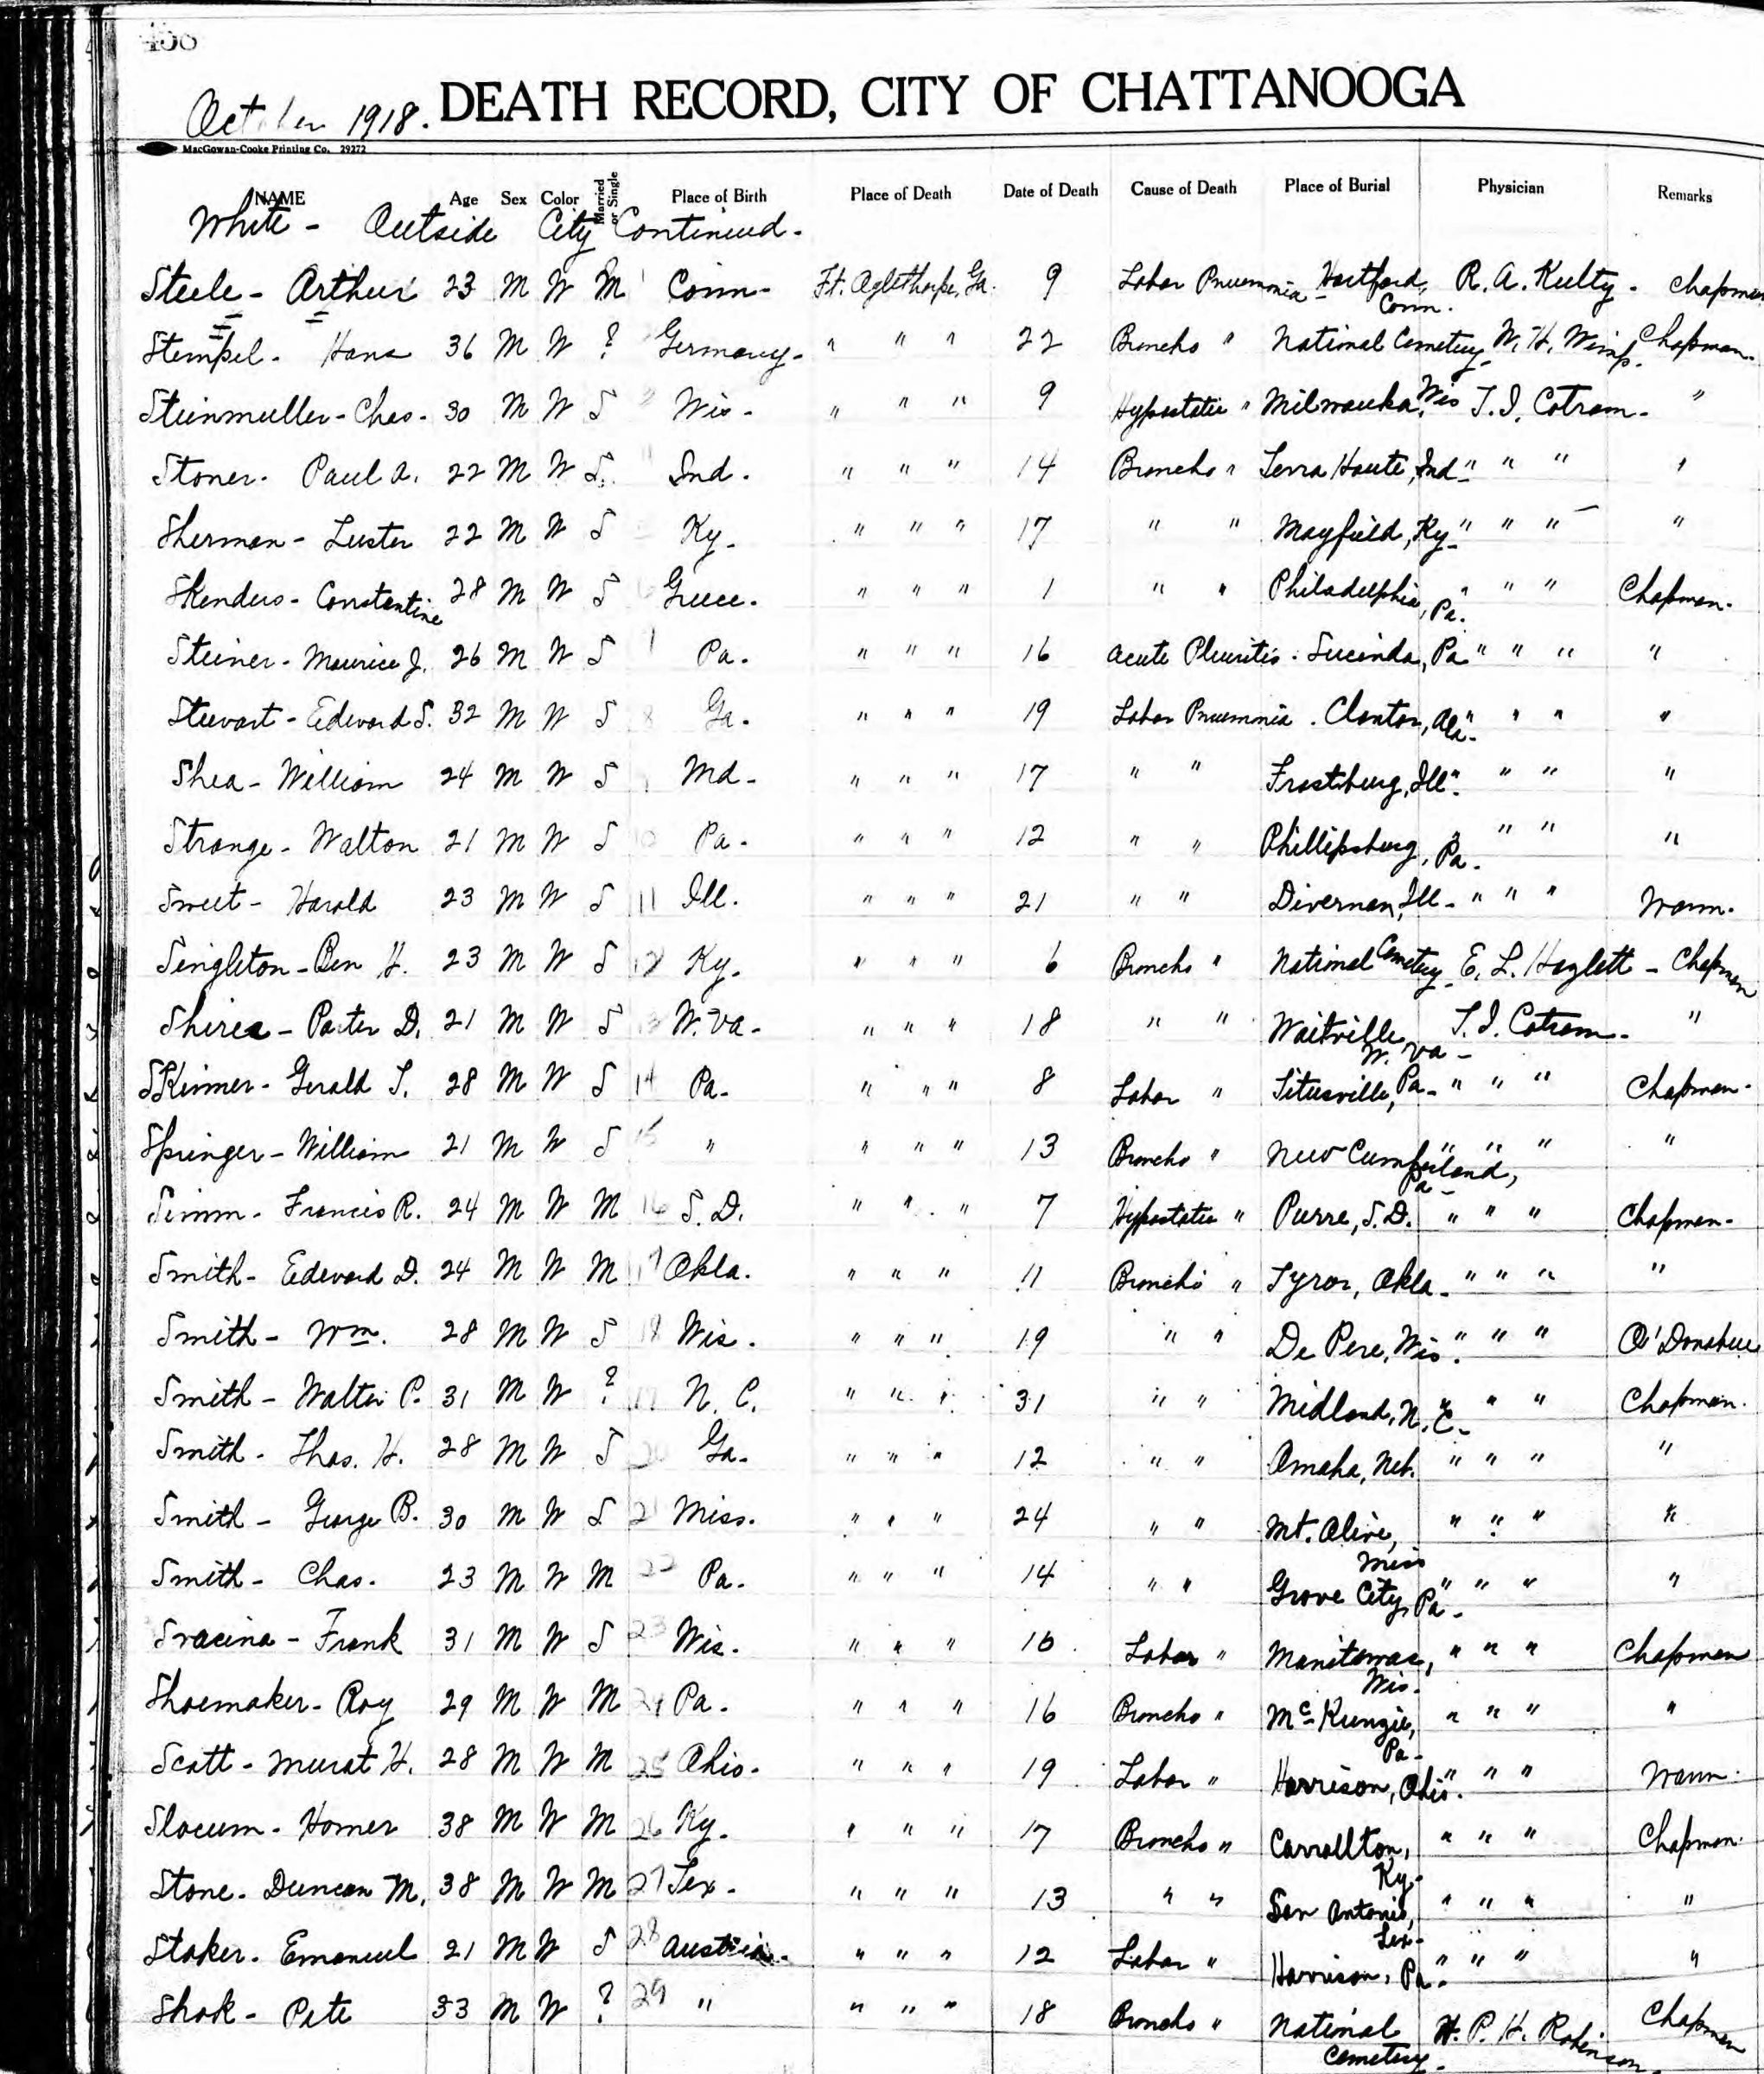 458
October 1918. DEATH RECORD, CITY OF CHATTANOOGA
MacGowan-Cooke Printing Co. 29272
NAME Age Sex Color Married or Single Place of Birth Place of Death Date of Death Cause of Death Place of Burial Physician Remarks
White - Outside City Continued.
Steele - Arthur 23 M W M Conn - Ft. Oglethorpe, Ga. 9 Lobar Pneumonia - Hartford, Conn. R. A. Kelty - Chapman
Stempel - Hans 36 M W ? Germany - " " " 22 Broncho " National Cemetery - W. H. Wimp. Chapman.
Steinmuller - Chas. 30 M W S Wis - " " " 9 Hypostatic " Milwauka, Wis T. I. Cotram - "
Stoner - Paul A. 22 M W S. 11 Ind. " " " 14 Broncho " Terra Haute, Ind - " " " "
Sherman - Luster 22 M W S Ky - " " " 17 " " Mayfield, Ky - " " " "
Skenders - Constantine 28 M W S Greece. " " " 1 " " Philadelphia, Pa. " " " Chapman.
Steiner - Maurice J. 26 M W S Pa. " " " 16 Acute Pleuritis - Lucinda, Pa " " " "
Stewart - Edward S. 32 M W S 8 Ga. " " " 19 Lobar Pneumonia. Clanton, Ala - " " " "
Shea - William 24 M W S Md - " " " 17 " " Frostburg, Ill - " " " "
Strange - Walton 21 M W S 10 Pa. " " " 12 " " Phillipsburg, Pa. " " " "
Sweet - Harold 23 M W S 11 Ill. " " " 21 " " Divernon, Ill - " " " Wann.
Singleton - Ben H. 23 M W S 12 Ky. " " " 6 Broncho " National Cemetery - E. L. Hazlett - Chapman
Shires - Porter D. 21 M W S 13 W. Va - " " " 18 " " Waitville, W. Va - T. I. Cotram - "
Skinner - Gerald T. 28 M W S 14 Pa - " " " 8 Lobar " Titusville, Pa - " " " Chapman -
Springer - William 21 M W S 15 " " " " 13 Broncho " New Cumberland, Pa - " " " "
Simm - Francis R. 24 M W M 16 S. D. " " " 7 Hypostatic " Pierre, S. D. " " " Chapman -
Smith - Edward D. 24 M W M 17 Okla. " " " 11 Broncho " Tyron, Okla - " " " "
Smith - Wm. 28 M W S 18 Wis. " " " 19 " " De Pere, Wis. " " " O'Donohue
Smith - Walter P. 31 M W ? 19 N. C. " " " 31 " " Midland, N. C - " " " Chapman.
Smith - Thos. H. 28 M W S 20 Ga - " " " 12 " " Omaha, Neb. " " " "
Smith - George B. 30 M W S 21 Miss. " " " 24 " " Mt. Olive, Miss " " " "
Smith - Chas. 23 M W M 22 Pa. " " " 14 " " Grove City, Pa - " " " "
Sracina - Frank 31 M W S 23 Wis. " " " 16 Lobar " Manitowac, Wis. " " " Chapman
Shoemaker - Roy 29 M W M 24 Pa. " " " 16 Broncho " McKenzie, Pa - " " " "
Scott - Murat H. 28 M W M 25 Ohio - " " " 19 Lobar " Harrison, Ohio. " " " Wann.
Slocum - Homer 38 M W M 26 Ky. " " " 17 Broncho " Carrollton, Ky - " " " Chapman.
Stone - Duncan M. 38 M W M 27 Tex - " " " 13 " " San Antonio, Tex - " " " "
Stoker - Emanuel 21 M W S 28 Austria - " " " 12 Lobar " Harrison, Pa - " " " "
Shok - Pete 33 M W ? 29 " " " " 18 Broncho " National Cemetery - H. P. H. Robinson. Chapman